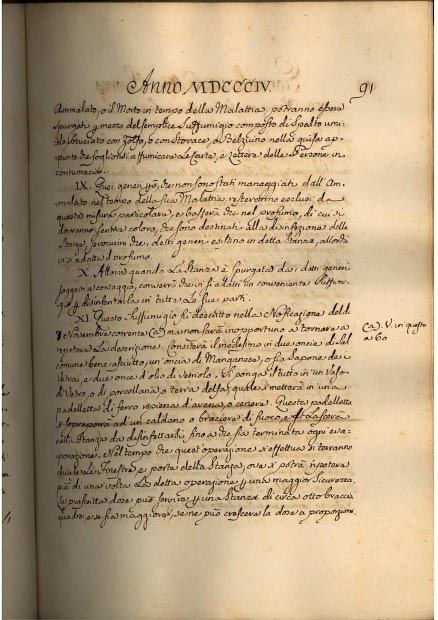 Anno MDCCCIV. 91
Ammalato, o il Morto in tempo della Malattia, potranno essere
spurgati p mezzo del semplice Suffumigio composto di Spalto umi-
do bruciato con Zolfo, o con storace, o Belzuino nella guisa ap-
punto che sogliensi affumicare le Carte, e Lettere delle Persone in
contumacia.
IX. Quei generi pò, che non sono stati maneggiati dall'Am-
malato nel tempo della sua Malattia, resteranno esclusi da
questa misura particolare, e basterà che nel profumo, di cui si
dovranno servire coloro, che sono destinati alla disinfezione delle
Stanze, procurin che i detti generi esistino in detta Stanza, allorchè
vi si adatta il profumo.
X. Allora quando la Stanza è spurgata dai detti generi
soggetti a contagio, converrà che vi si adatti un conveniente Suffu-
migio p disinfettarla in tutte le sue parti.
XI. Questo Suffumigio fù descritto nella Notificazione del dì
Novembre corrente (a) ma non sarà inopportuno a tornare a
ripeterne la descrizione. Consisterà il medesimo in due oncie di Sal
comune bene asciutto, un'oncia di Manganese, o sia Sapone de
Vetrai, e due once d'olio di Vetriolo. Si ponga il tutto in un Vaso
di Vetro, o di porcellana, o terra del quale si metterà in una
padelletta di ferro ripiena d'arena, o cenere. Questa padelletta
si soprapporrà ad un caldano o braciere di fuoco, e si lascerà
nella Stanza da disinfettarsi, fino a che sia terminata ogni eva-
porazione. Nel tempo che quest'operazione si effettua si terranno
chiuse le Finestre, e porte della Stanza, ove si potrà ripetere
più di una volta la detta operazione p una maggior sicurezza.
La prescritta dose può servire p una Stanza di circa otto braccia
quadre, e se sia maggiore, se ne può crescere la dose a proporzione.
(a) V. in questo
a 60